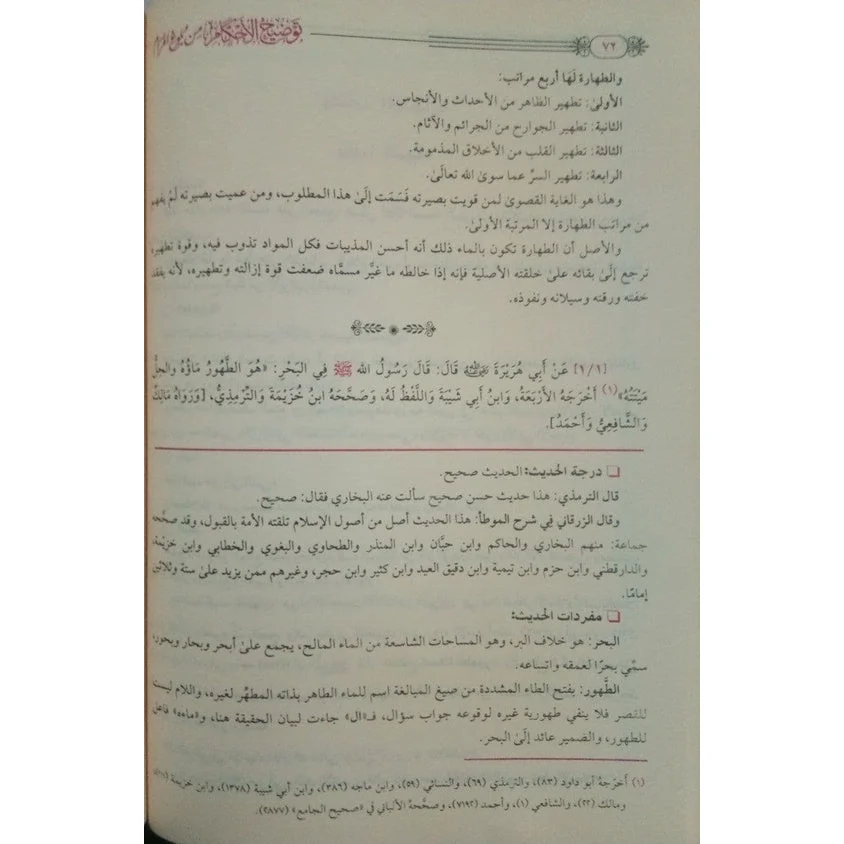 ٧٢
توضيح الأحكام من بلوغ المرام
والطهارة لَهَا أربع مراتب:
الأولىٰ: تطهير الظاهر من الأحداث والأنجاس.
الثانية: تطهير الجوارح من الجرائم والآثام.
الثالثة: تطهير القلب من الأخلاق المذمومة.
الرابعة: تطهير السرِّ عما سوىٰ الله تعالَىٰ.
وهذا هو الغاية القصوىٰ لمن قويت بصيرته فَسَمَت إلَىٰ هذا المطلوب، ومن عميت بصيرته لَمْ يفهم
من مراتب الطهارة إلا المرتبة الأولىٰ.
والأصل أن الطهارة تكون بالماء ذلك أنه أحسن المذيبات فكل المواد تذوب فيه، وقوة تطهيره
ترجع إلَىٰ بقائه علىٰ خلقته الأصلية فإنه إذا خالطه ما غيَّر مسمَّاه ضعفت قوة إزالته وتطهيره، لأنه يفقد
خفته ورقته وسيلانه ونفوذه.
[١/١] عَنْ أَبِي هُرَيْرَةَ رضي الله عنه قَالَ: قَالَ رَسُولُ الله ﷺ فِي البَحْرِ: «هُوَ الطَّهُورُ مَاؤُهُ والحِلُّ
مَيْتَتُهُ»(١) أَخْرَجَهُ الأَرْبَعَةُ، وَابنُ أَبِي شَيْبَةَ وَاللَّفْظُ لَهُ، وَصَحَّحَهُ ابنُ خُزَيْمَةَ وَالتِّرْمِذِيُّ، [وَرَوَاهُ مَالِكٌ
وَالشَّافِعِيُّ وَأَحْمَدُ].
❑ درجة الحديث: الحديث صحيح.
قال الترمذي: هذا حديث حسن صحيح سألت عنه البخاري فقال: صحيح.
وقال الزرقاني فِي شرح الموطأ: هذا الحديث أصل من أصول الإسلام تلقته الأمة بالقبول، وقد صحَّحه
جماعة: منهم البخاري والحاكم وابن حبَّان وابن المنذر والطحاوي والبغوي والخطابي وابن خزيمة،
والدارقطني وابن حزم وابن تيمية وابن دقيق العيد وابن كثير وابن حجر، وغيرهم ممن يزيد علىٰ ستة وثلاثين
إمامًا.
❑ مفردات الحديث:
البحر: هو خلاف البر، وهو المساحات الشاسعة من الماء المالح، يجمع علىٰ أبحر وبحار وبحور،
سمِّي بحرًا لعمقه واتساعه.
الطَّهور: بفتح الطاء المشددة من صيغ المبالغة اسم للماء الطاهر بذاته المطهِّر لغيره، واللام ليست
للقصر فلا ينفي طهورية غيره لوقوعه جواب سؤال، فـ«ال» جاءت لبيان الحقيقة هنا، و«ماءه» فاعل
للطهور، والضمير عائد إلَىٰ البحر.
(١) أخرجهُ أبو داود (٨٣)، والترمذي (٦٩)، والنسائي (٥٩)، وابن ماجه (٣٨٦)، وابن أبي شيبة (١٣٧٨)، وابن خزيمة
ومالك (٢٢)، والشافعي (١)، وأحمد (٧١٩٢)، وصحَّحهُ الألباني في «صحيح الجامع» (٢٨٧٧).